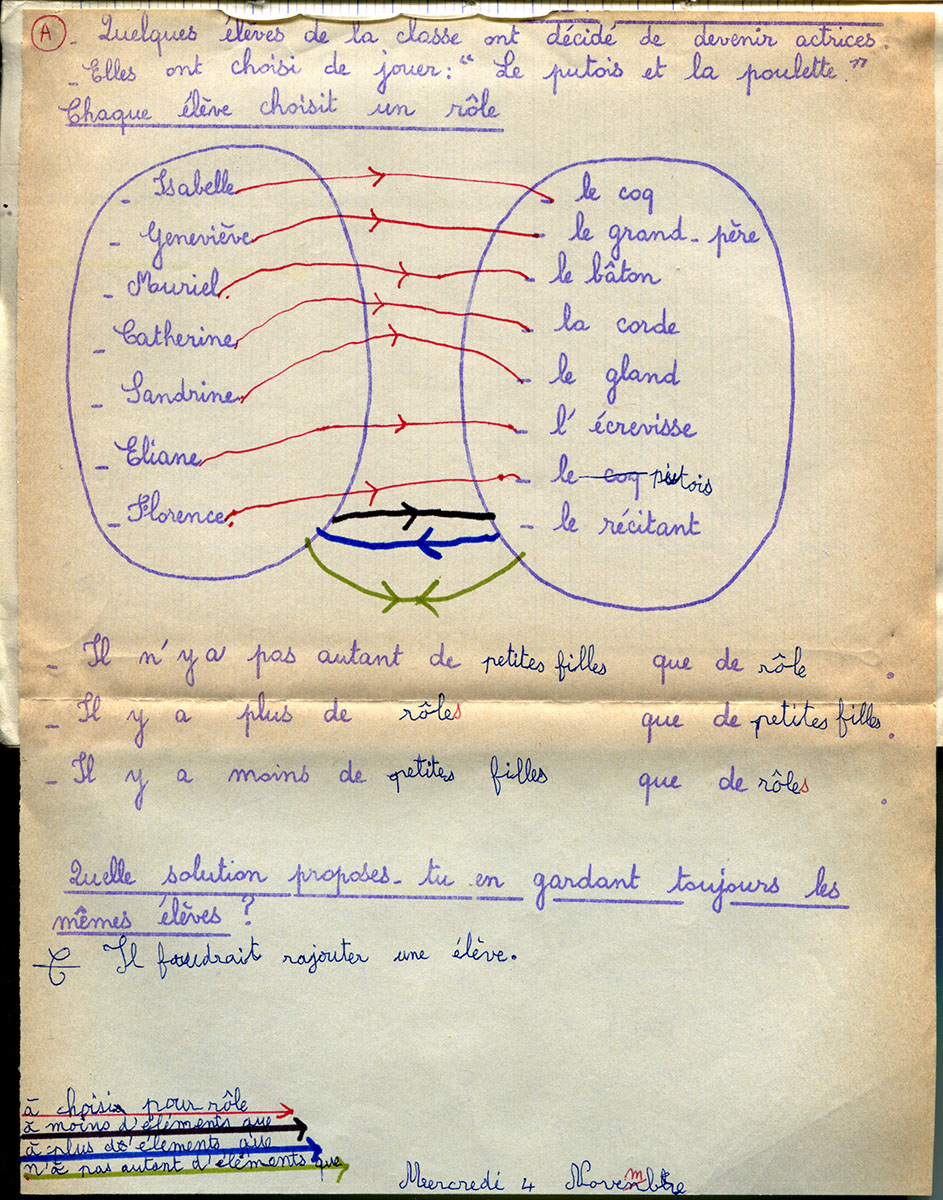 A - Quelques élèves de la classe ont décidé de devenir actrices.
- Elles ont choisi de jouer : " Le putois et la poulette. "
Chaque élève choisit un rôle
- Isabelle
- le coq
- Geneviève
- le grand-père
- Muriel
- le bâton
- Catherine
- la corde
- Sandrine
- le gland
- Eliane
- l'écrevisse
- le coq putois
- Florence
- le récitant
- Il n'y a pas autant de petites filles que de rôle .
- Il y a plus de rôles que de petites filles .
- Il y a moins de petites filles que de rôles .
Quelle solution proposes-tu en gardant toujours les
mêmes élèves ?
Il faudrait rajouter une élève.
à choisi pour rôle
à moins d'éléments que
à plus d'éléments que
n'à pas autant d'éléments que
Mercredi 4 Novembre